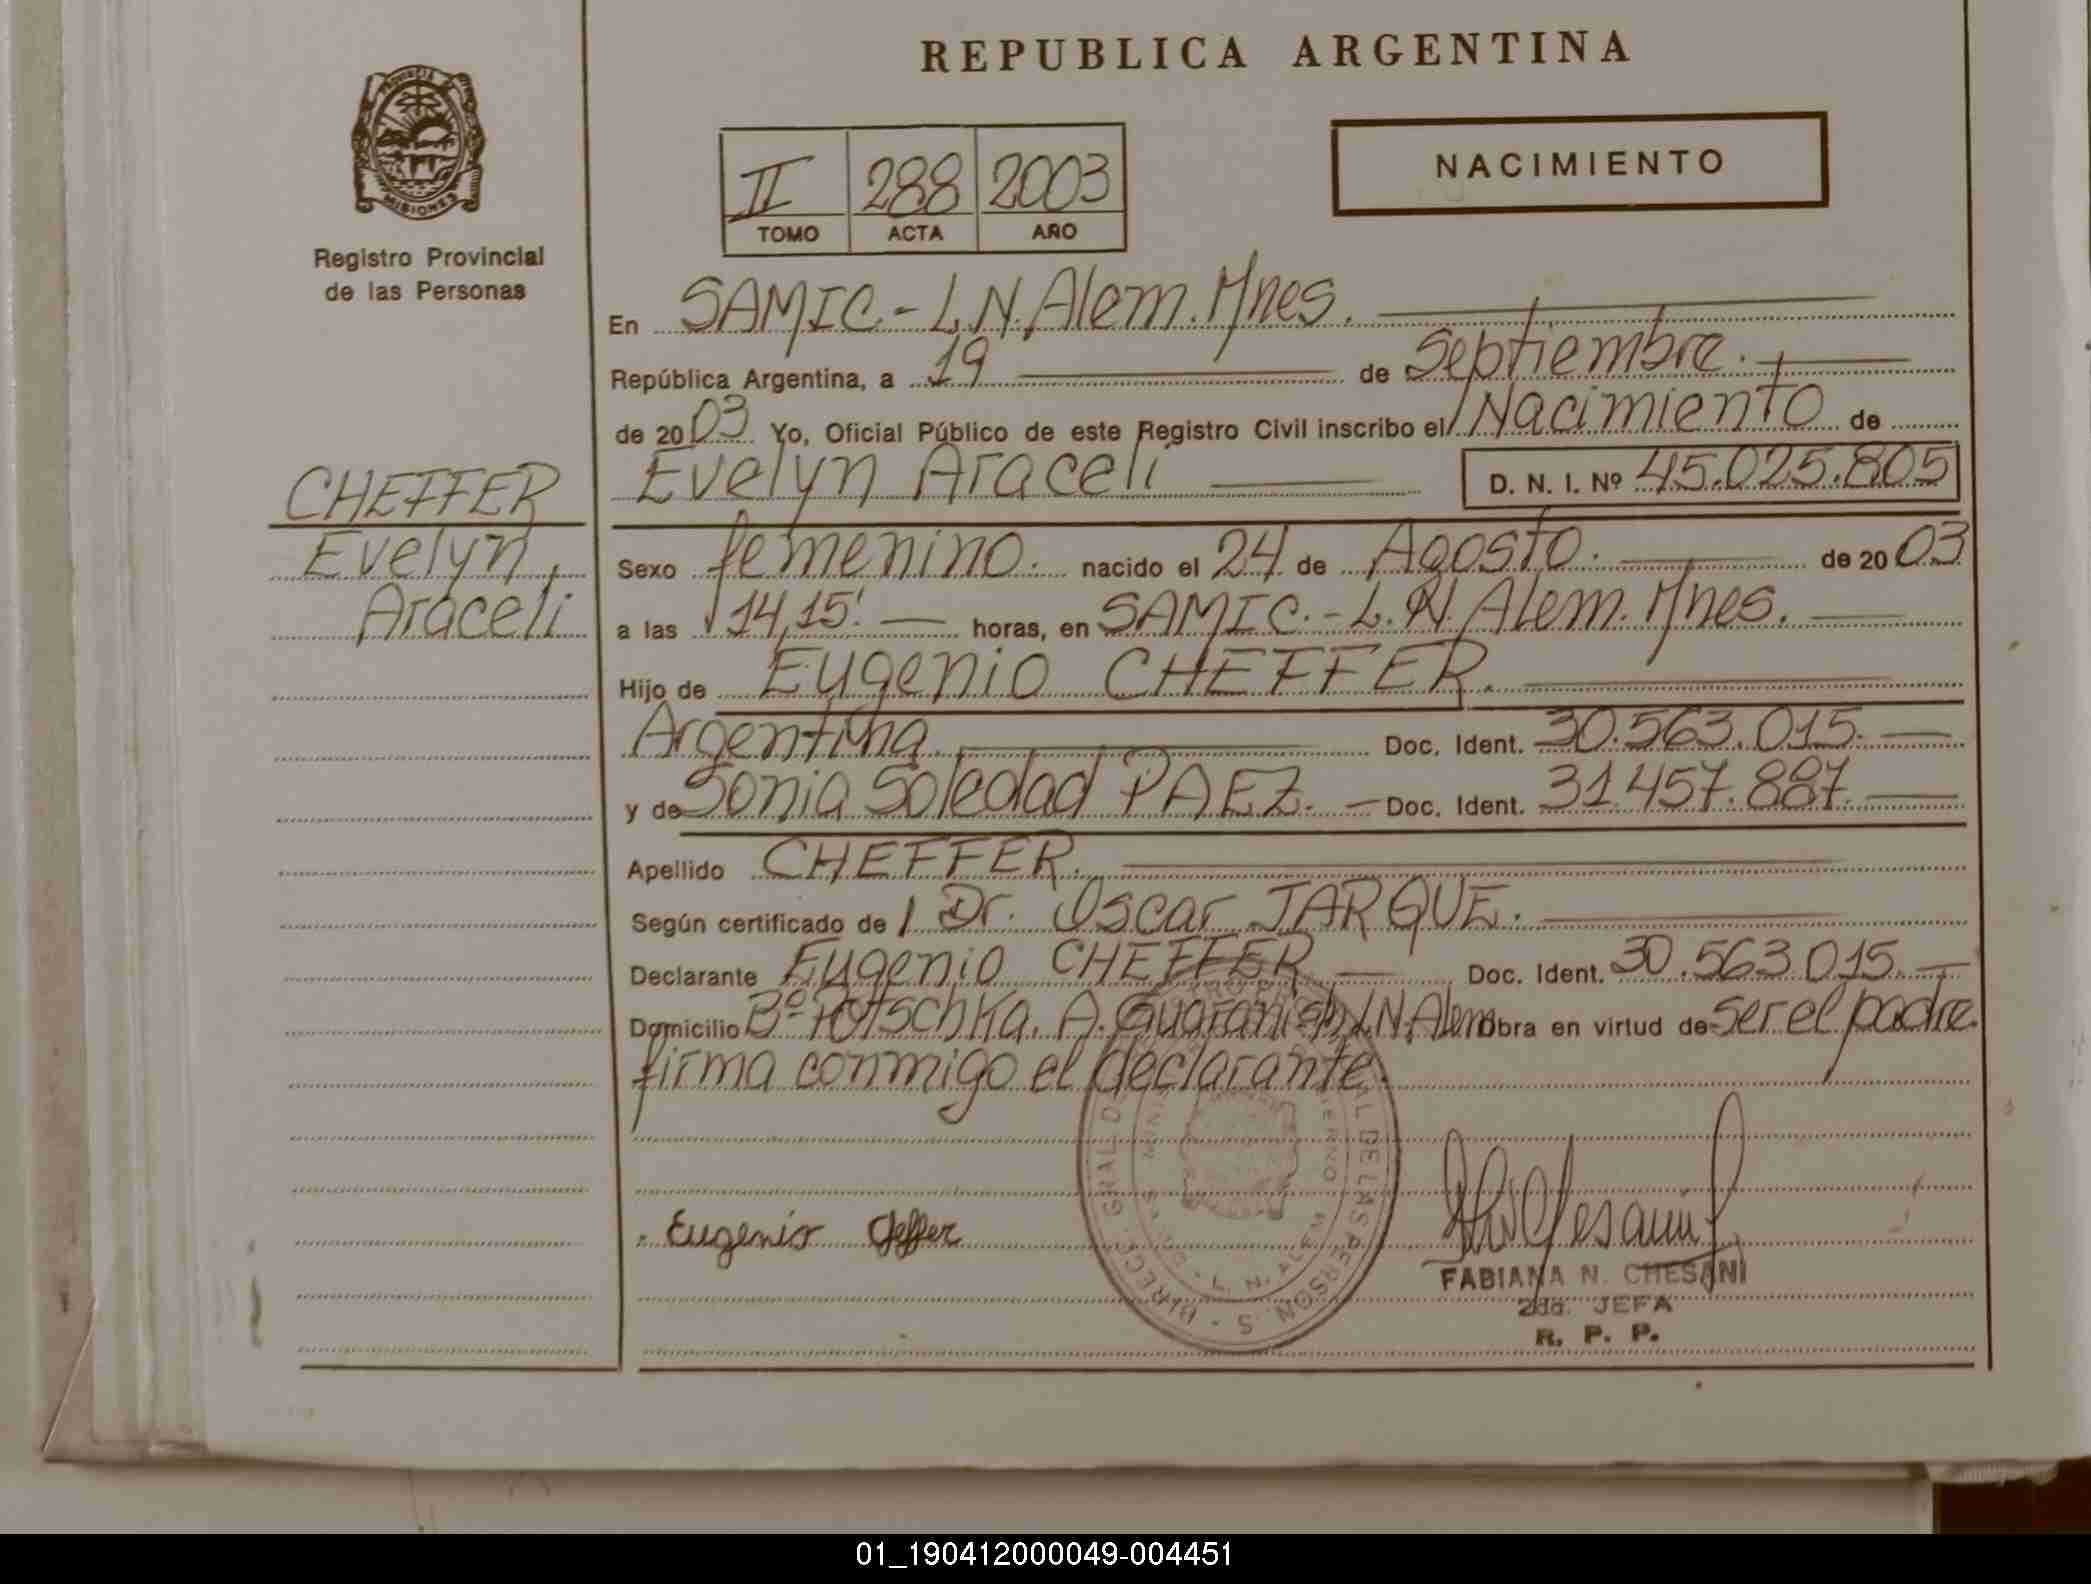 REPUBLICA ARGENTINA
PROVINCIA DE
MISIONES
Registro Provincial
de las Personas
II 288 2003
TOMO ACTA AÑO
NACIMIENTO
En SAMIC.- L.N. Alem. Mnes.
República Argentina, a 19 de Septiembre.
de 2003 Yo, Oficial Público de este Registro Civil inscribo el Nacimiento de
Evelyn Araceli D. N. I. Nº 45.025.805
CHEFFER
Evelyn
Araceli
Sexo femenino. nacido el 24 de Agosto. de 2003
a las 14,15' horas, en SAMIC.- L.N. Alem. Mnes.
Hijo de Eugenio CHEFFER.
Argentina. Doc. Ident. 30.563.015.
y de Sonia Soledad PAEZ. Doc. Ident. 31.457.887.
Apellido CHEFFER.
Según certificado de Dr. Oscar JARQUE.
Declarante Eugenio CHEFFER Doc. Ident. 30.563.015.
Domicilio Bº Potschka. A. Guaraní L.N. Alem Obra en virtud de ser el padre.
firma conmigo el declarante.
Eugenio Cheffer
FABIANA N. CHESANI
2da. JEFA
R. P. P.
01_190412000049-004451